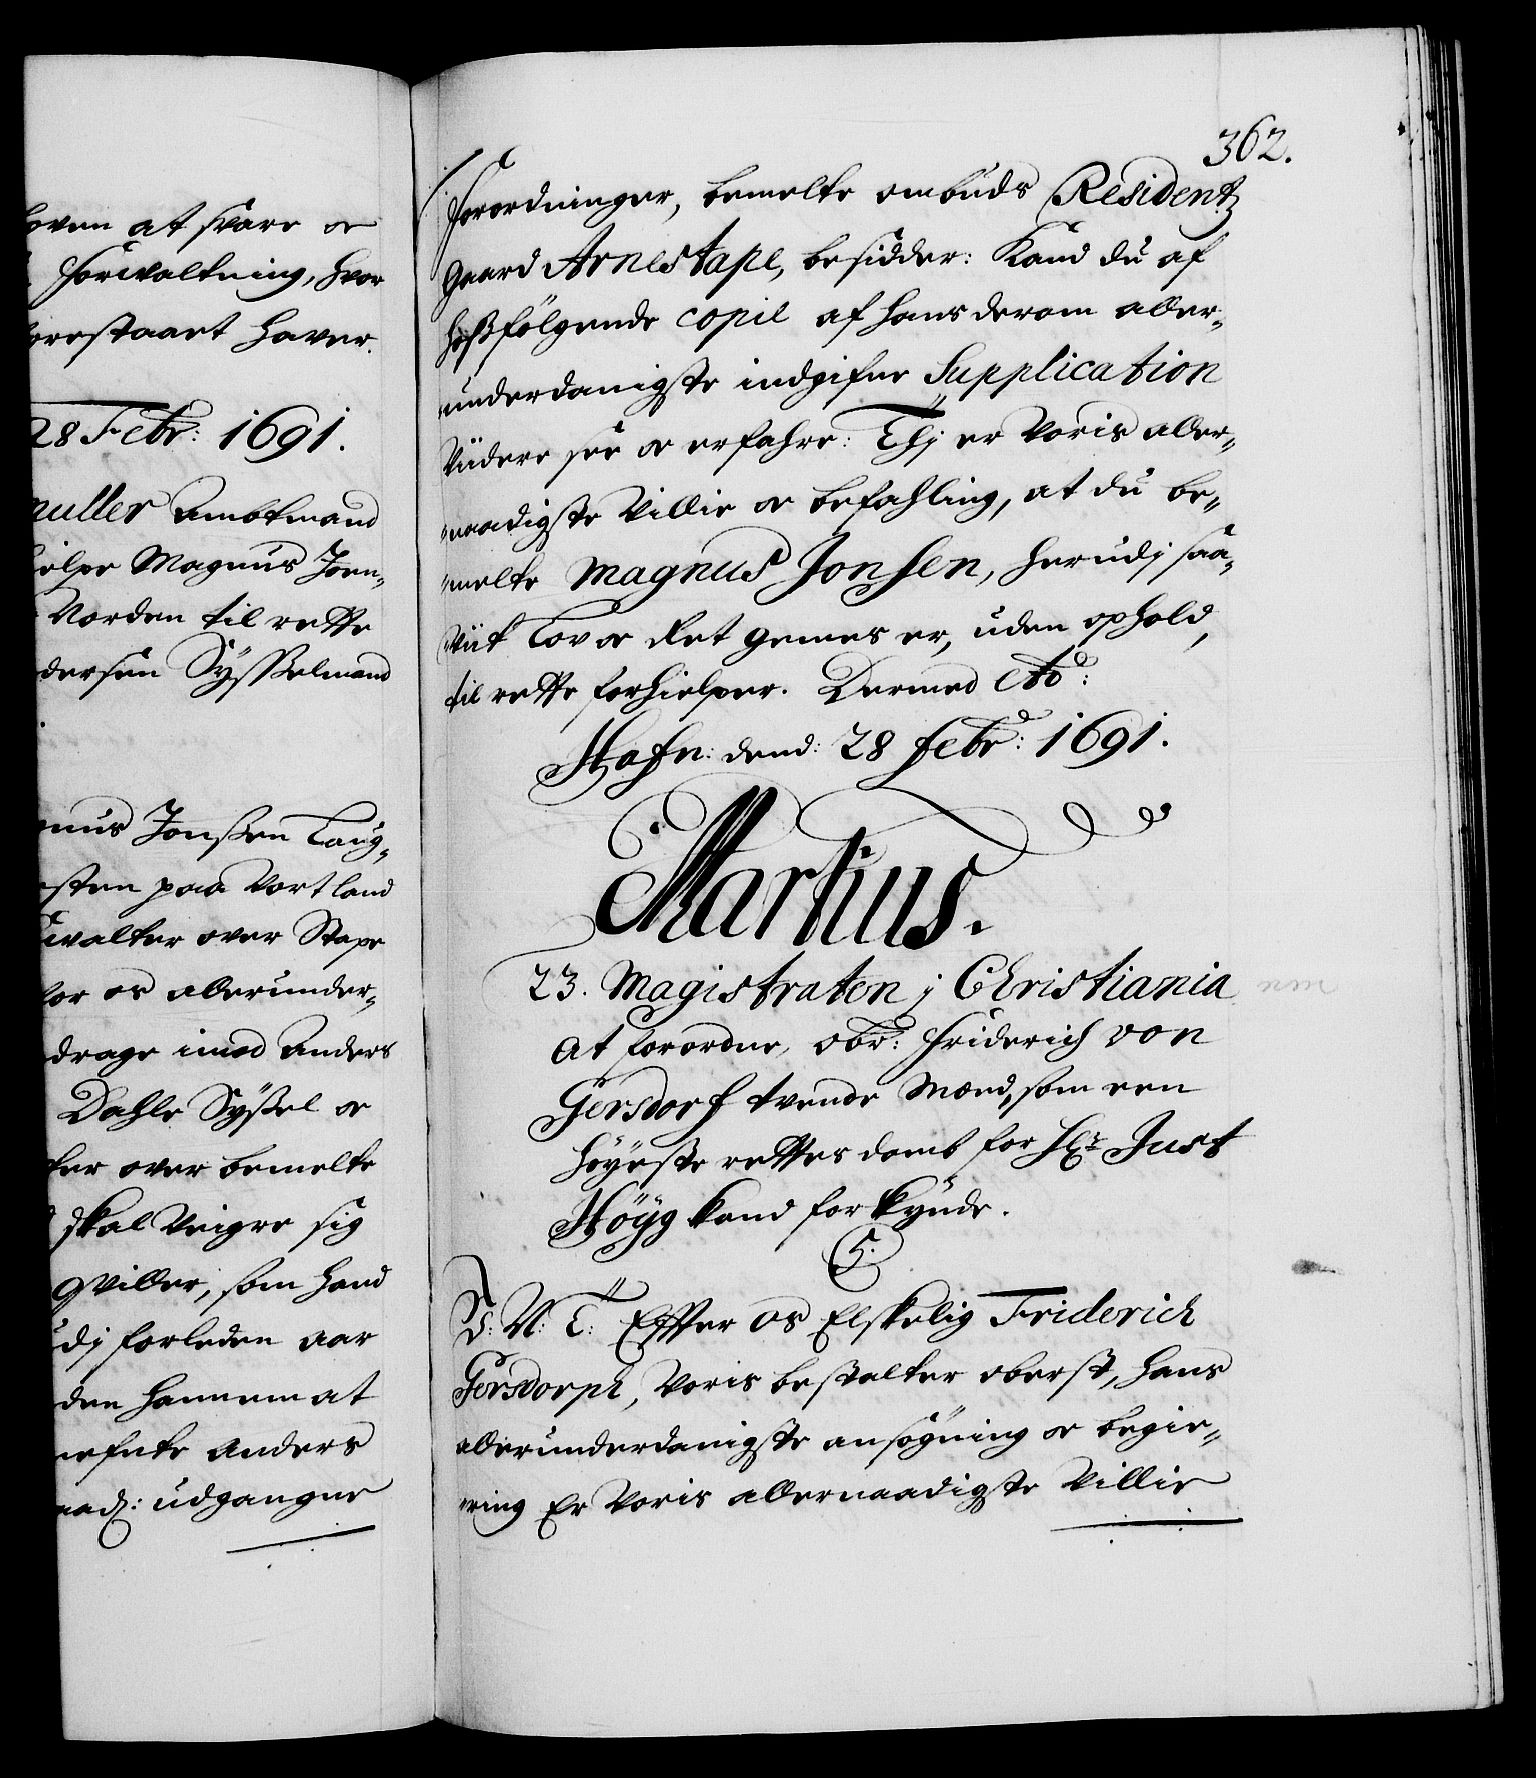 oven at svare oc
forvaltning, hvor
forestaaet hafver.
28 Febr: 1691.
muller Ambtmand
hielpe Magnus Joen-
Norden til rette
dersen Sysselmand
gnus Jonssen Laug-
esten paa Vort land
rvalter over Stape
for os allerunder-
drage imod Anders
Dahle Syssel oc
ter over bemelte
skal Veigre sig
qviller, som hand
udj forleden aar
den hannem at
nefnte Anders
naad: udgangne
362.
forordninger, bemelte ombuds Residentz
gaard Arnestape, besidder: Kand du af
hosfölgende copie af hans derom aller-
underdanigste indgifne Supplication
Viidere see oc erfahre: Thj er Voris aller-
naadigste Villie oc befahling, at du be-
melte Magnus Jonsen, herudj saa-
viit Lov oc Ret gemes er, uden ophold,
til rette forhielper. Dermed etc:
Hafn: dend: 28 Febr: 1691.
Martius.
23. Magistraten j Christiania
At forordne, obr: Friderich von
Gersdorf tvende Mænd, som een
höyeste rettes domb for Hr: Just
Höyg kand forkynde.
C5.
V: G: T: Effter os Elskelig Friderich
Gersdorph, Voris bestalter oberst, hans
allerunderdanigste ansögning oc begie-
ring Er Voris allernaadigste Villie